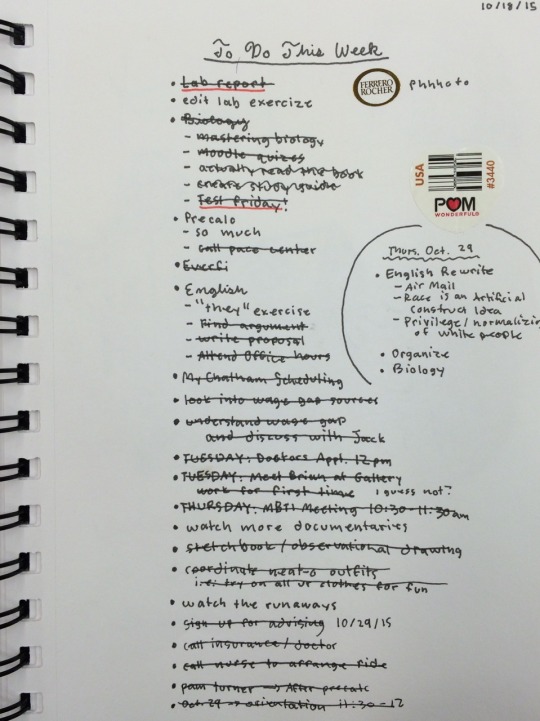 10/18/15
To Do This Week
• Lab report
FERRERO ROCHER
Phhhoto
• edit lab exercize
• Biology
- mastering biology
- moodle quizes
- actually read the book
- create study guide
- Test Friday!
USA
#3440
POM
WONDERFUL®
• Precalc
- so much
- call pace center
•
• English
- "they" exercise
- Find argument
- write proposal
- Attend Office hours
Thurs. Oct. 29
• English Rewrite
- Air Mail
- Race is an Artificial
construct Idea
- Privilege/normalizing
of white people
• Organize
• Biology
• My Chatham Scheduling
• look into wage gap sources
• understand wage gap
and discuss with Jack
• TUESDAY: Doctors Appt. 12pm
• TUESDAY: Meet Brian at Gallery
work for first time I guess not?
• THURSDAY: MBTI Meeting 10:30-11:30am
• watch more documentaries
• sketchbook/observational drawing
• coordinate neat-o outfits
i.e: try on all ur clothes for fun
• watch the runaways
• sign up for advising 10/29/15
• call insurance/doctor
• call nurse to arrange ride
• pam turner → After precalc
• Oct 29 → orientation 11:30-12